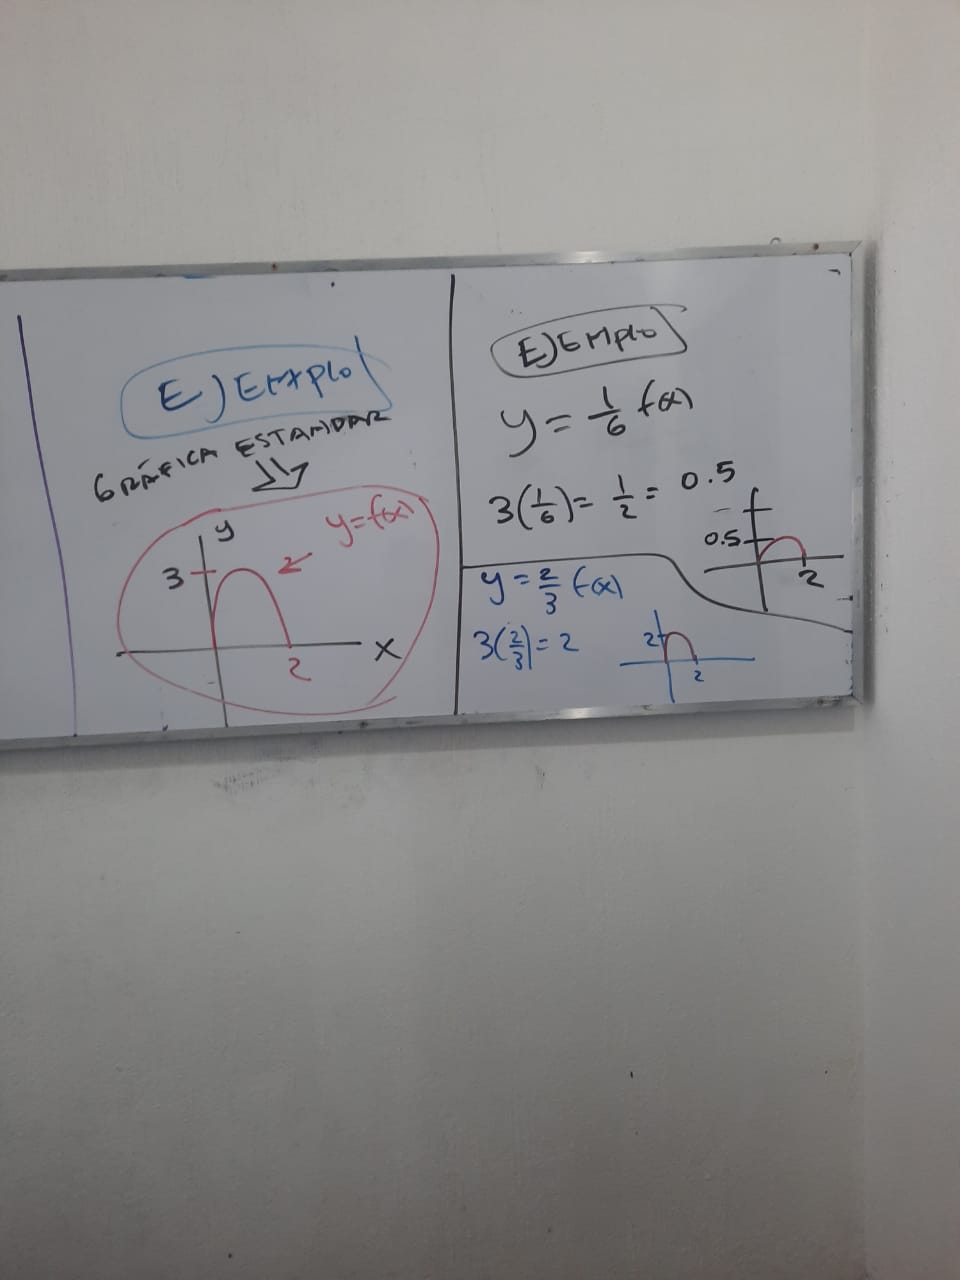 EJEMPLO
GRÁFICA ESTANDAR
y
y=f(x)
3
x
2
EJEMPLO
y = 1/6 f(x)
3(1/6) = 1/2 = 0.5
0.5
2
y = 2/3 f(x)
3(2/3) = 2
2
2